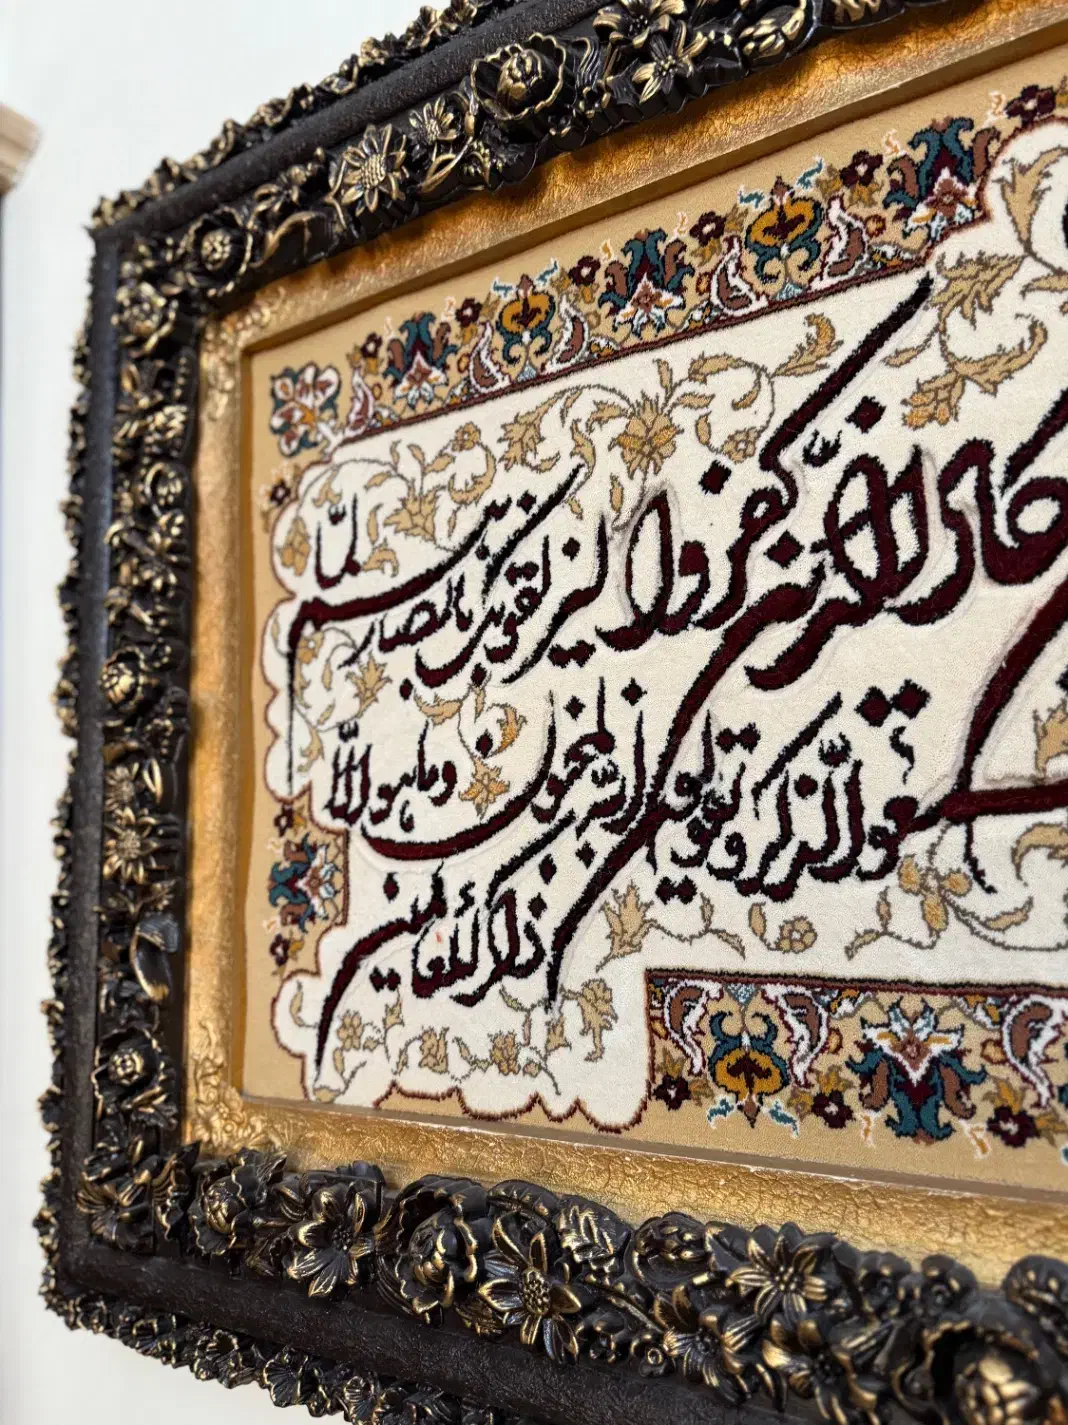 كاد الذين كفروا ليزلقونك بابصارهم لما
سمعوا الذكر و يقولون انه لمجنون و ما هو الا
ذكر للعالمين